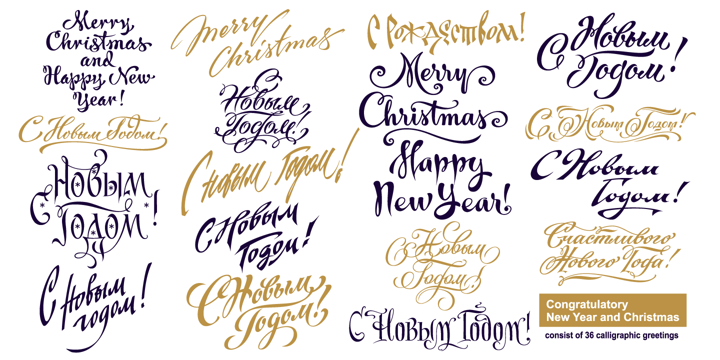 Merry
Christmas
and
Happy New
Year!
С Новым Годом!
С Новым
Годом!
С Новым
годом!
Merry
Christmas
С Новым
Годом!
С Новым Годом!
С Новым
Годом!
С Новым
Годом!
С Рождеством!
Merry
Christmas
Happy
New Year!
С Новым
Годом!
С Новым Годом!
С Новым
Годом!
С Новым Годом!
С Новым
Годом!
Счастливого
Нового Года!
Congratulatory
New Year and Christmas
consist of 36 calligraphic greetings